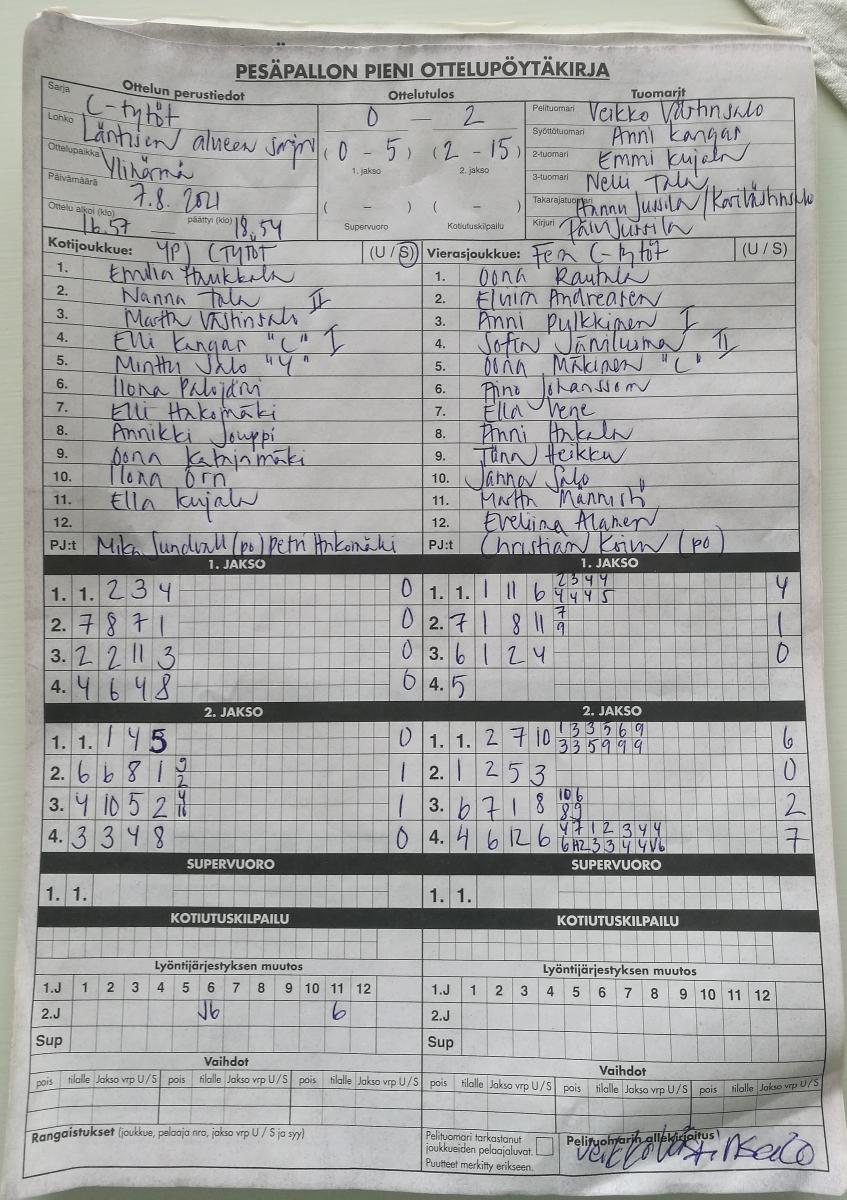 PESÄPALLON PIENI OTTELUPÖYTÄKIRJA
Ottelun perustiedot
Sarja C-tytöt
Lohko Läntisen alueen sarja
Ottelupaikka Ylihärmä
Päivämäärä 7.8. 2021
Ottelu alkoi (klo) 16.57 päättyi (klo) 18.54
Ottelutulos
0 — 2
(0 - 5) (2 - 15)
1. jakso 2. jakso
( - ) ( - )
Supervuoro Kotiutuskilpailu
Tuomarit
Pelituomari Veikko Västinsalo
Syöttötuomari Anni Kangas
2-tuomari Emmi Kujala
3-tuomari Nelli Tala
Takarajatuomari Hannu Jussila /
Kirjuri Päivi Jussila
Kotijoukkue: YPJ C TYTÖT (U / S)
1. Emilia Haukkala
2. Nanna Tala II
3. Martta Västinsalo
4. Elli Kangas "C" I
5. Minttu Salo "Y"
6. Ilona Palojärvi
7. Elli Hakomäki
8. Annikki Jouppi
9. Oona Katajamäki
10. Ilona Örn
11. Ella Kujala
12.
PJ:t Mika Sundvall (po) Petri Hakomäki
Vierasjoukkue: Fera C-tytöt (U / S)
1. Oona Rautala
2. Elviira Andreasen
3. Anni Pylkkänen I
4. Sofia Järviluoma II
5. Oona Mäkinen "C"
6. Aino Johansson
7. Ella Vene
8. Anni Ankala
9. Heikka
10. Janna Salo
11. Martta Männistö
12. Eveliina Alanen
PJ:t Christian Koivu (po)
1. JAKSO
1. 1. 2 3 4 0
2. 7 8 7 1 0
3. 2 2 11 3 0
4. 4 6 4 8 0
1. JAKSO
2 3 4 4
1. 1. 1 11 6 4 4 4 5 4
7
2. 7 1 8 11 9 1
3. 6 1 2 4 0
4. 5
2. JAKSO
1. 1. 1 4 5 0
2. 6 6 8 1 2 1
3. 4 10 5 2 4 1
4. 3 3 4 8 0
2. JAKSO
1 3 3 5 6 9
1. 1. 2 7 10 3 3 5 9 9 9 6
2. 1 2 5 3 0
10 6
3. 6 7 1 8 8 9 2
4 7 1 2 3 4 4
4. 4 6 12 6 6 3 3 4 4 7
SUPERVUORO
1. 1.
SUPERVUORO
1. 1.
KOTIUTUSKILPAILU
KOTIUTUSKILPAILU
Lyöntijärjestyksen muutos
1.J 1 2 3 4 5 6 7 8 9 10 11 12
2.J J6 6
Sup
Lyöntijärjestyksen muutos
1.J 1 2 3 4 5 6 7 8 9 10 11 12
2.J
Sup
Vaihdot
pois tilalle Jakso vrp U / S pois tilalle Jakso vrp U / S pois tilalle Jakso vrp U / S
Vaihdot
pois tilalle Jakso vrp U / S pois tilalle Jakso vrp U / S pois tilalle Jakso vrp U / S
Rangaistukset (joukkue, pelaaja nro, jakso vrp U / S ja syy)
Pelituomari tarkastanut
joukkueiden pelaajaluvat.
Puutteet merkitty erikseen.
Pelituomarin allekirjoitus
Veikko Västinsalo